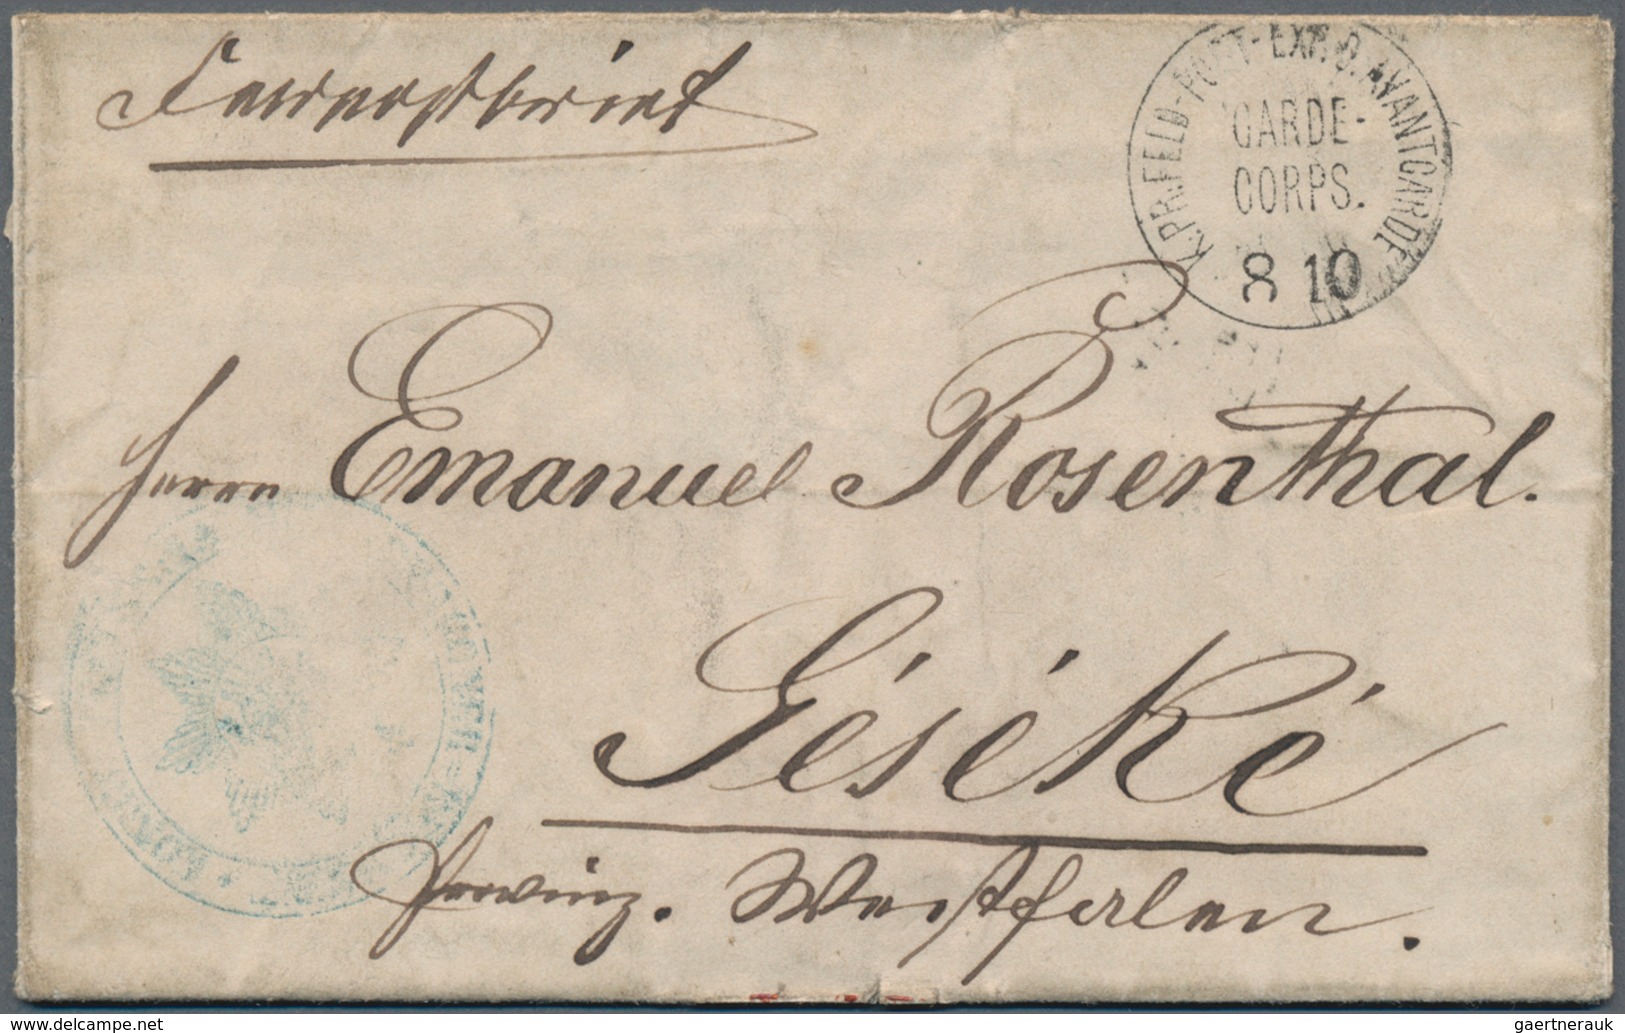 Feldpostbrief
K.PR.FELD-POST-EXP.D.AVANTGARDE
GARDE-
CORPS.
8 10
Herrn Emanuel Rosenthal.
Géséké
Provinz. Westfalen.
www.delcampe.net
gaertnerauk